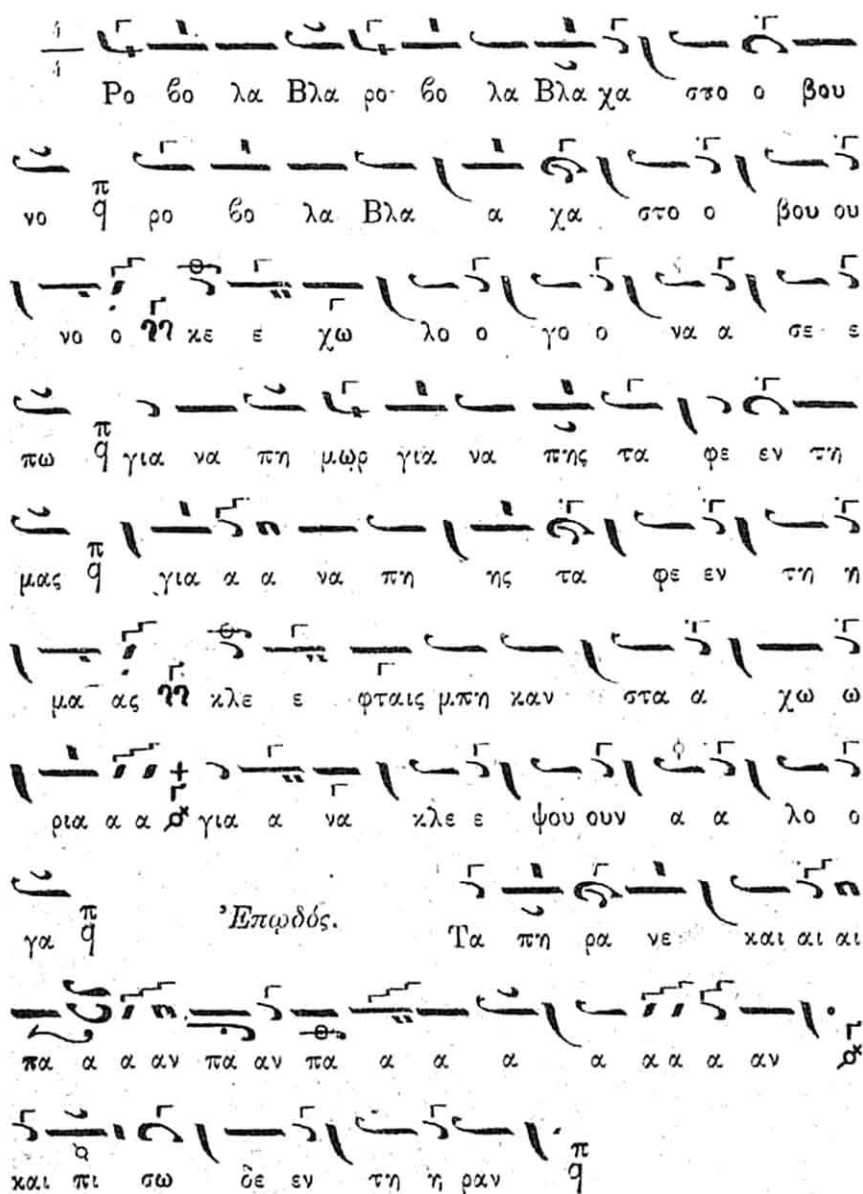 Ρο βο λα Βλα ρο βο λα Βλα χα στο ο βου
νο π̣ q ρο βο λα Βλα α χα στο ο βου ου
νο ο κε ε χω λο ο γο ο να α σε ε
πω π q για να πη μωρ για να πης τα φε εν τη
μας π q για α α να πη ης τα φε εν τη η
μα ας κλε ε φταις μπη καν στα α χω ω
ρια α α για α να κλε ε ψου ουν α α λο ο
γα π q Ἐπῳδός. Τα πη ρα νε και αι αι
πα α α αν πα αν πα α α α α α α α αν
και πι σω δε εν τη η ραν π q